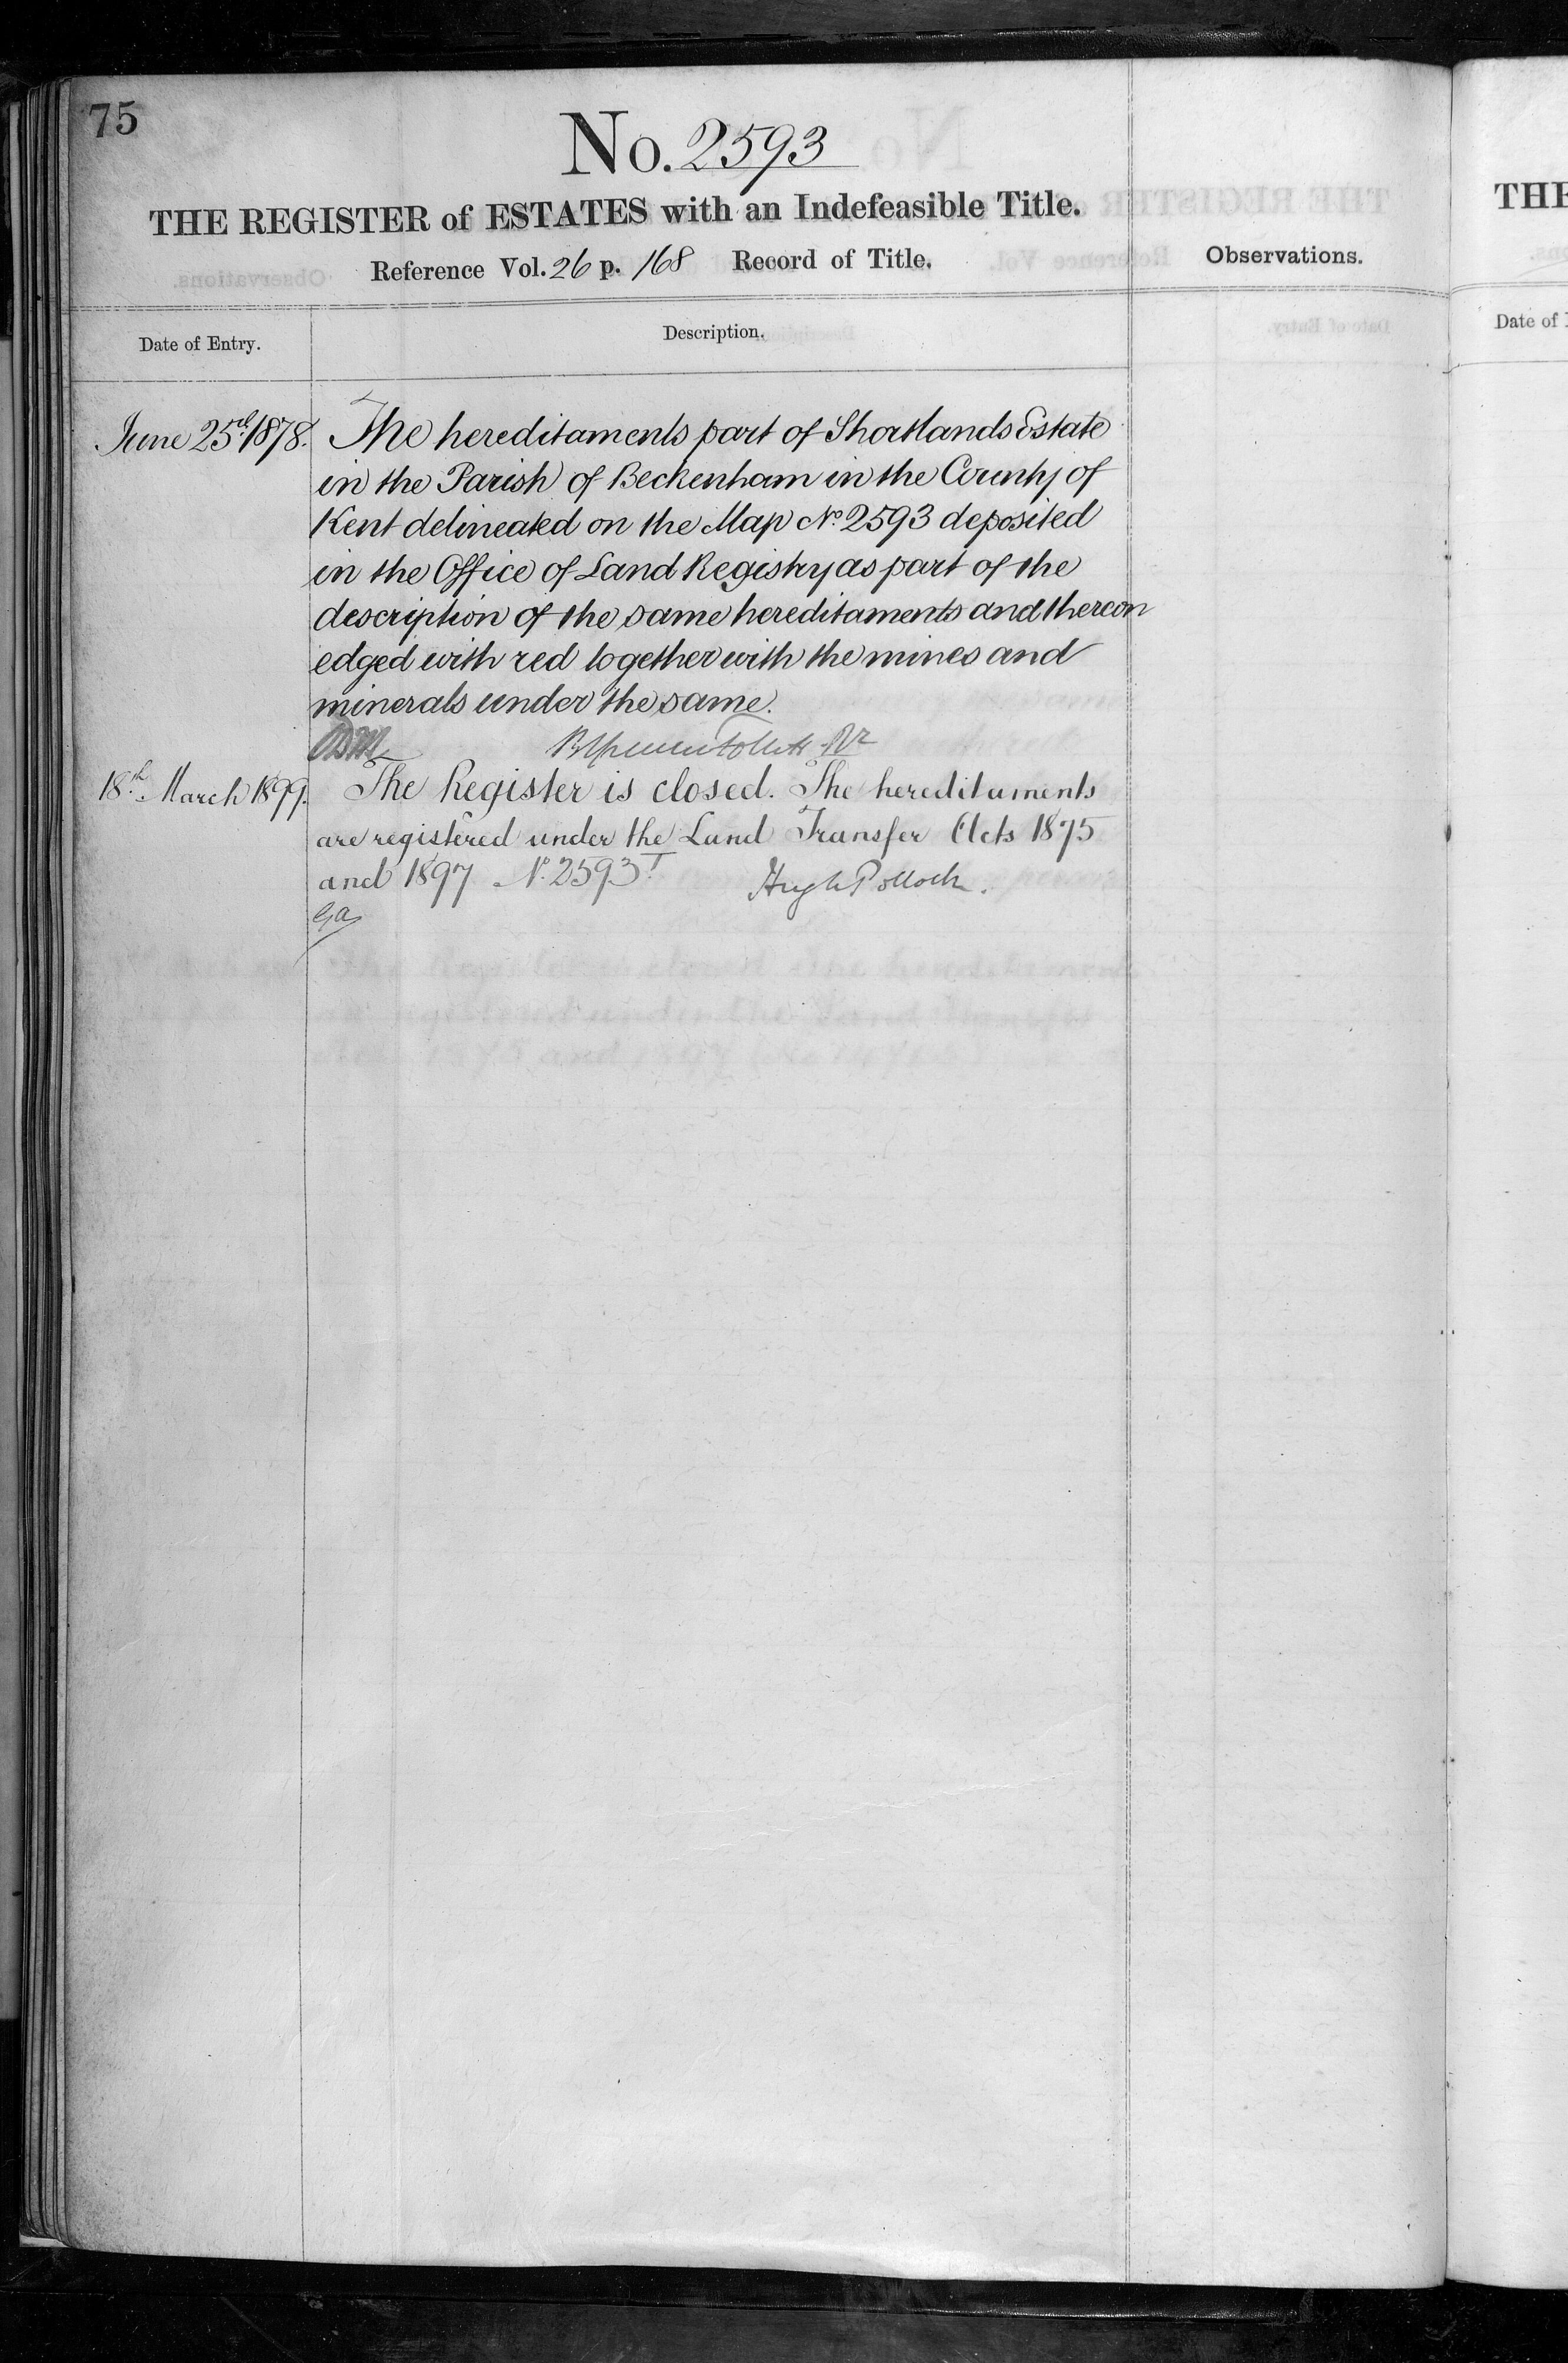 75
No. 2593
THE REGISTER of ESTATES with an Indefeasible Title.
Reference Vol. 26 p. 168 Record of Title.
Observations.
Date of Entry.
Description.
June 25th 1878. The hereditaments part of Shortlands Estate
in the Parish of Beckenham in the County of
Kent delineated on the Map No. 2593 deposited
in the Office of Land Registry as part of the
description of the same hereditaments and thereon
edged with red together with the mines and
minerals under the same.
18th March 1899. The Register is closed. The hereditaments
are registered under the Land Transfer Acts 1875
and 1897 No. 2593T. Hugh Pollock.
THE
Date of